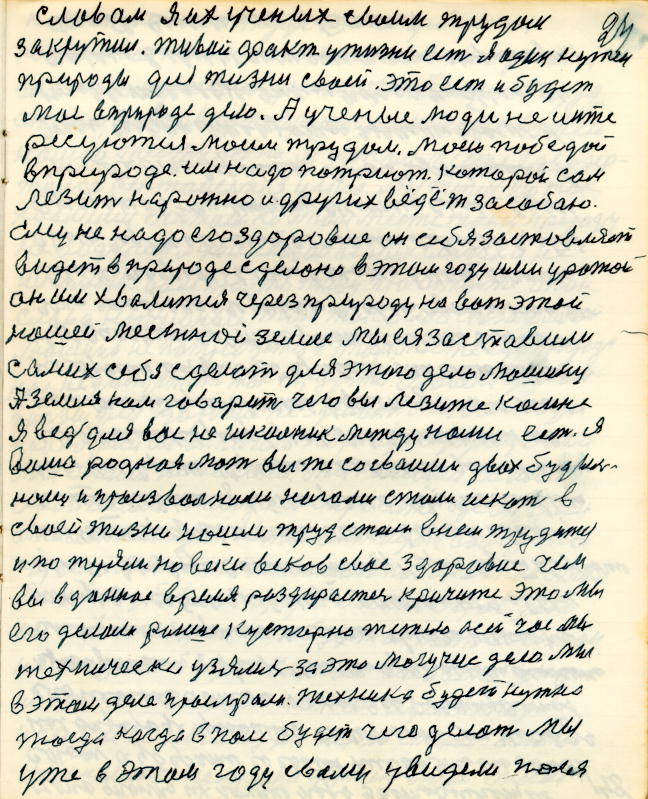 24
словам я их ученых своим трудом
закрутил. живой факт у жизни ест я один нужен
природы для жизни своей. это ест и будет
мое в природе дело. А ученые люди не инте
ресуются моим трудом. моею победой
в природе. им надо потриот. которой сам
лезит нарошно и других ведёт за сабою.
ему не надо его здоровие он себя застовляет
видет в природе сделоно в этом году или урожой
он им хвалится через природу на вот этой
нашей местной земле мы ея заставили
самих себя сделат для этого дело машину
А земля нам говарит чего вы лезите ко мне
я вед для вас не школник между нами ест. я
Ваша родная мат вы же со своими двох
номи и произволноми ногами стали искат в
своей жизни нашли труд стали в нем трудится
и потеряли на веки веков свое здоровие чем
вы в данное время раздираетес кричите это мы
его делали раньше кустарно тяжело
технически узялис за это могучие дело мы
в этом деле проиграли. техника будет нужна
тогда когда в поле будет чего делат мы
уже в этом году с вами увидели поля